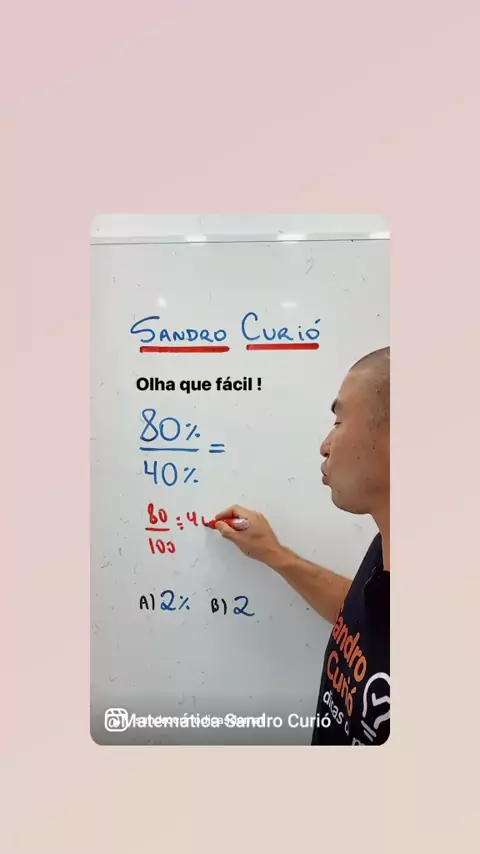 SANDRO CURIÓ
Olha que fácil !
80%
40% =
80
100
÷ 4
A) 2% B) 2
Sandro
Curió
Matemática Sandro Curió